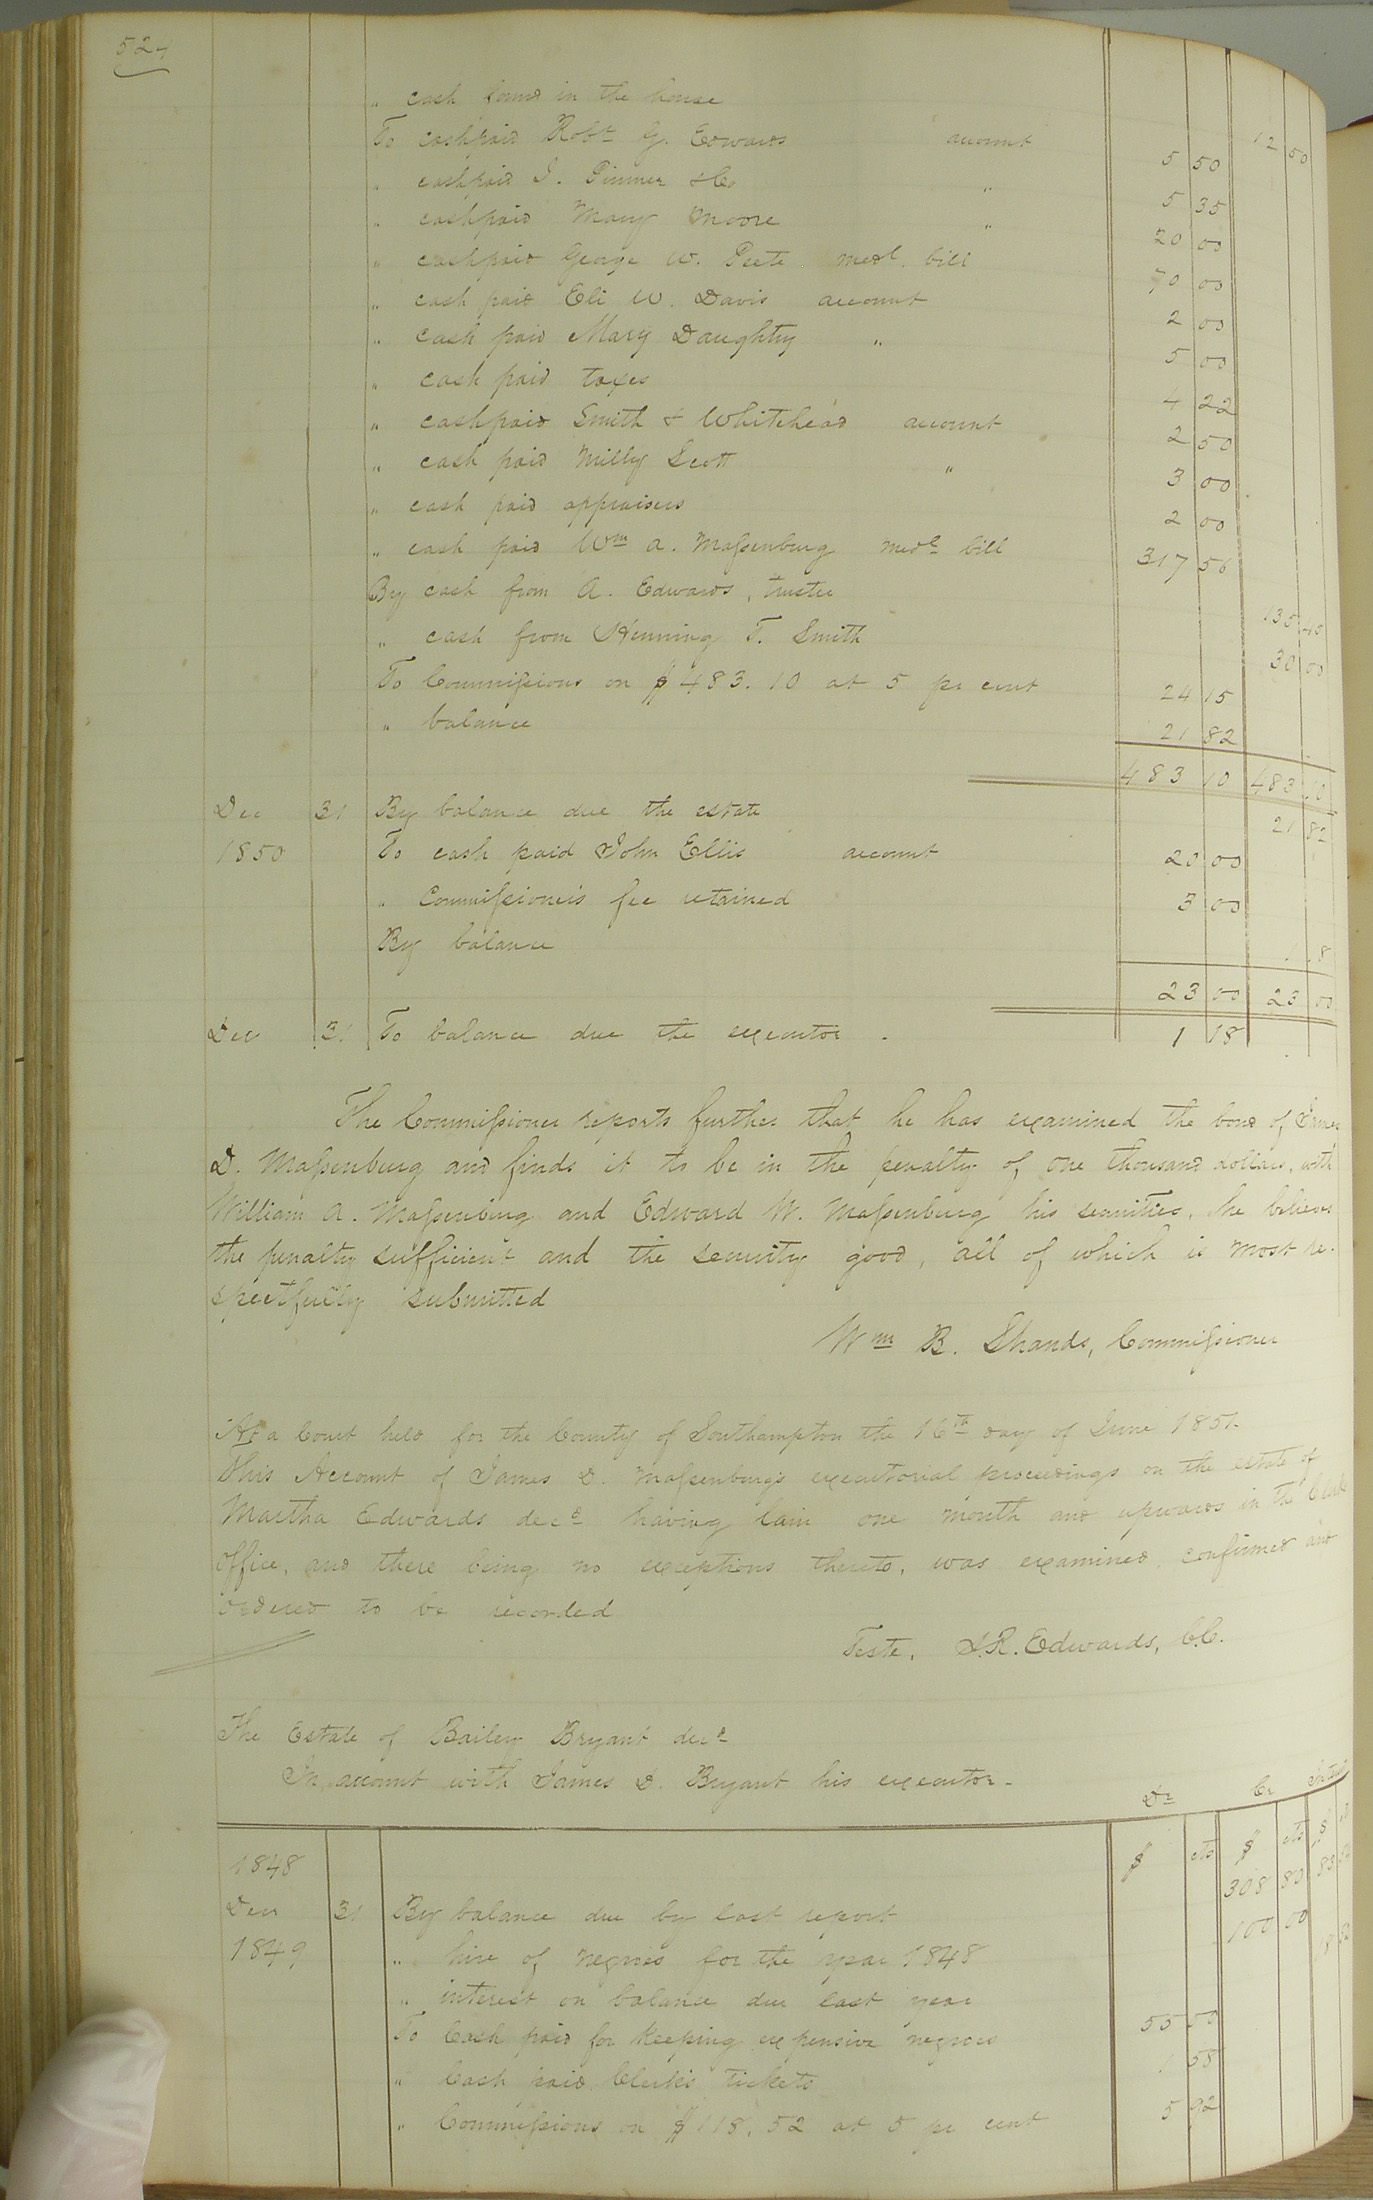 524
" cash found in the house 12 50
To cash paid Robt G. Edwards account 5 50
" cash paid J. Pinner & Co " 5 35
" cash paid Mary Moore " 20 00
" cash paid George W. Peete medl. bill 70 00
" cash paid Eli W. Davis account 2 00
" cash paid Mary Daughtry " 5 00
" cash paid taxes 4 22
" cash paid Smith & Whitehead account 2 50
" cash paid Milly Scott " 3 00
" cash paid appraisers 2 00
" cash paid Wm A. Massenburg medl bill 317 56
By cash from A. Edwards, trustee 135 45
" cash from Henning T. Smith 30 00
To Commissions on $483.10 at 5 pr cent 24 15
" balance 21 82
483 10 483 10
Dec 31 By balance due the estate 21 82
1850 To cash paid John Ellis account 20 00
" Commissioner's fee retained 3 00
By balance 8
23 00 23 00
Dec 31 To balance due the executor. 1 18
The Commissioner reports further that he has examined the bond of James
D. Massenburg and finds it to be in the penalty of one thousand dollars, with
William A. Massenburg and Edward W. Massenburg his securities, he believes
the penalty sufficient and the security good, all of which is most re-
spectfully submitted
Wm B. Shands, Commissioner
At a Court held for the County of Southampton the 16th day of June 1851
This Account of James D. Massenburg's executorial proceedings on the estate of
Martha Edwards decd having lain one month and upwards in the Clerks
office, and there being no exceptions thereto, was examined, confirmed and
ordered to be recorded
Teste, L.R. Edwards, C.C.
The Estate of Bailey Bryant decd
In account with James D. Bryant his executor-
Dr Cr Interest
1848 $ cts $ cts $
Decr 31 By balance due by last report 308 80
1849 " hire of negroes for the year 1848 100 00
" interest on balance due last year 18 52
To Cash paid for keeping expensive negroes 55 50
" Cash paid Clerk's tickets 1 58
" Commissions on $118.52 at 5 pr cent 5 92